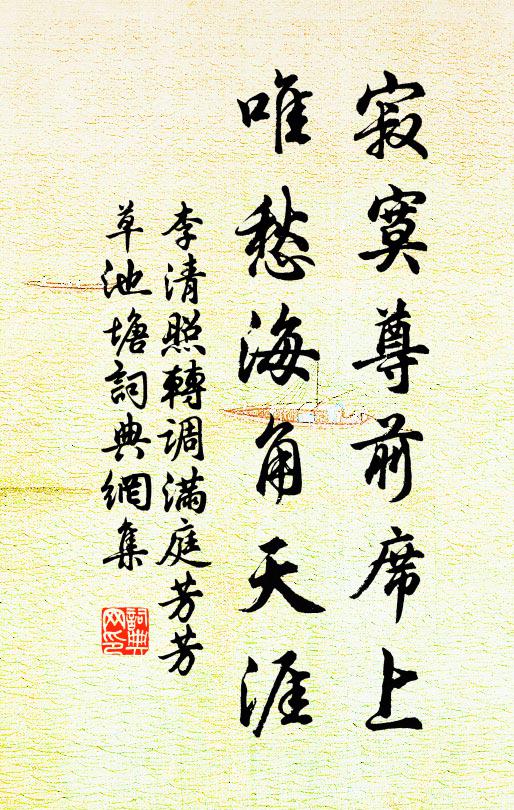 寂寞尊前席上
唯愁海角天涯
李清照轉调滿庭芳芳
草池塘詞典網集
詞典网印